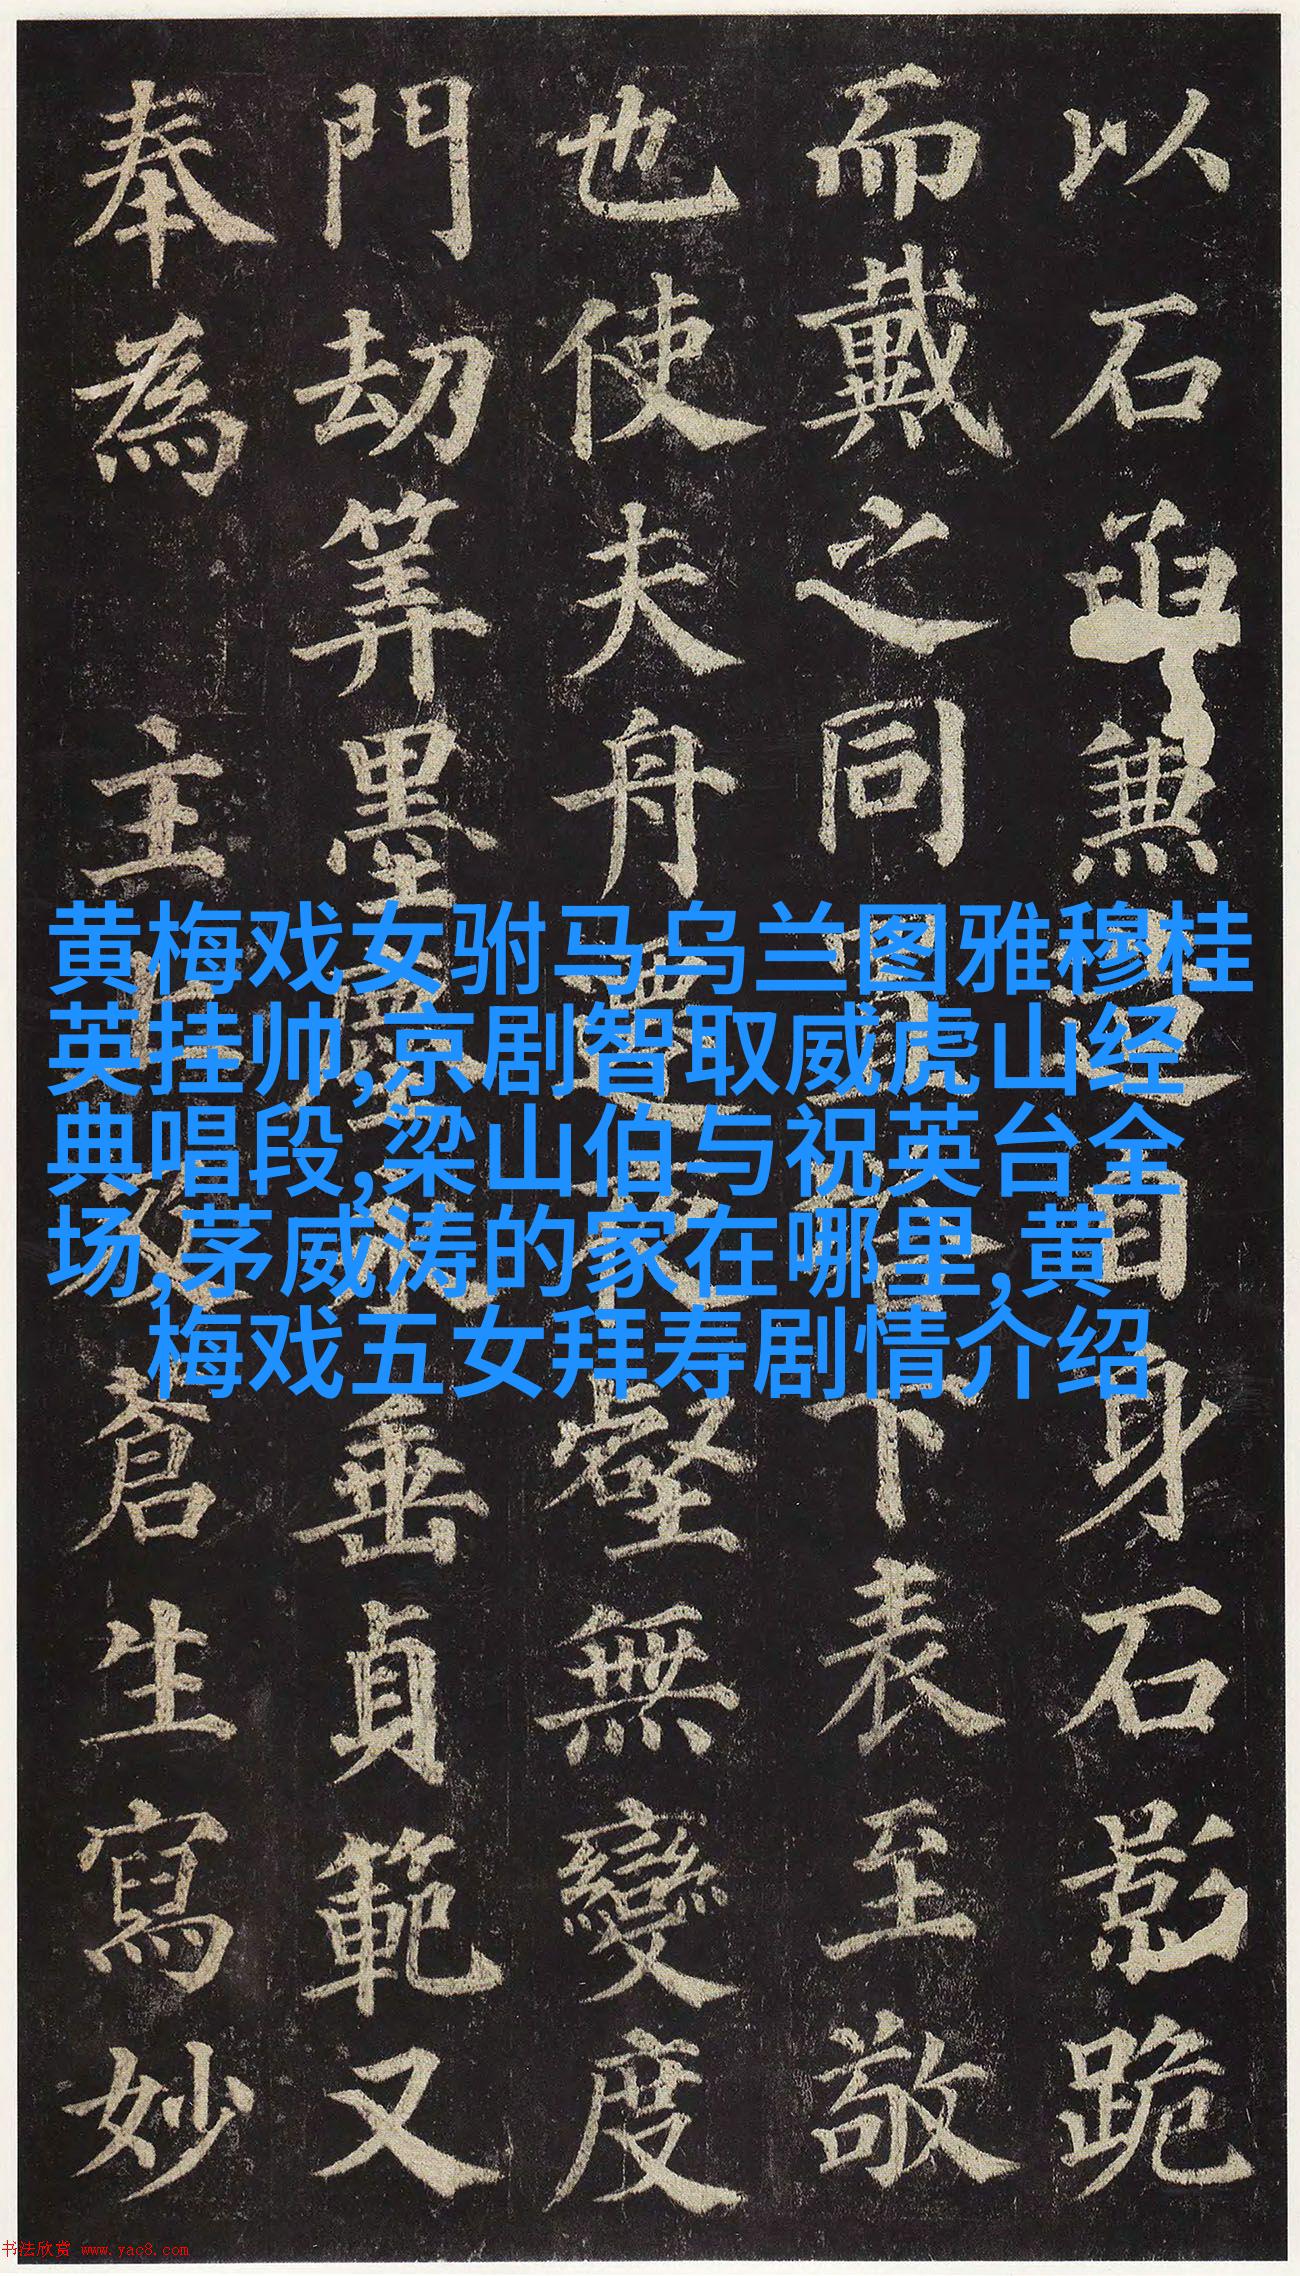 以石函兼造自身石影跪
而戴之同置塔下表至敬
也使夫舟遷夜壑無變度
門劫筭墨塵永垂貞範又
奉為主上及蒼生寫妙
黄梅戏女驸马乌兰图雅穆桂
英挂帅,京剧智取威虎山经
典唱段,梁山伯与祝英台全
场,茅威涛的家在哪里,黄
梅戏五女拜寿剧情介绍
书法欣赏 www.yac8.com